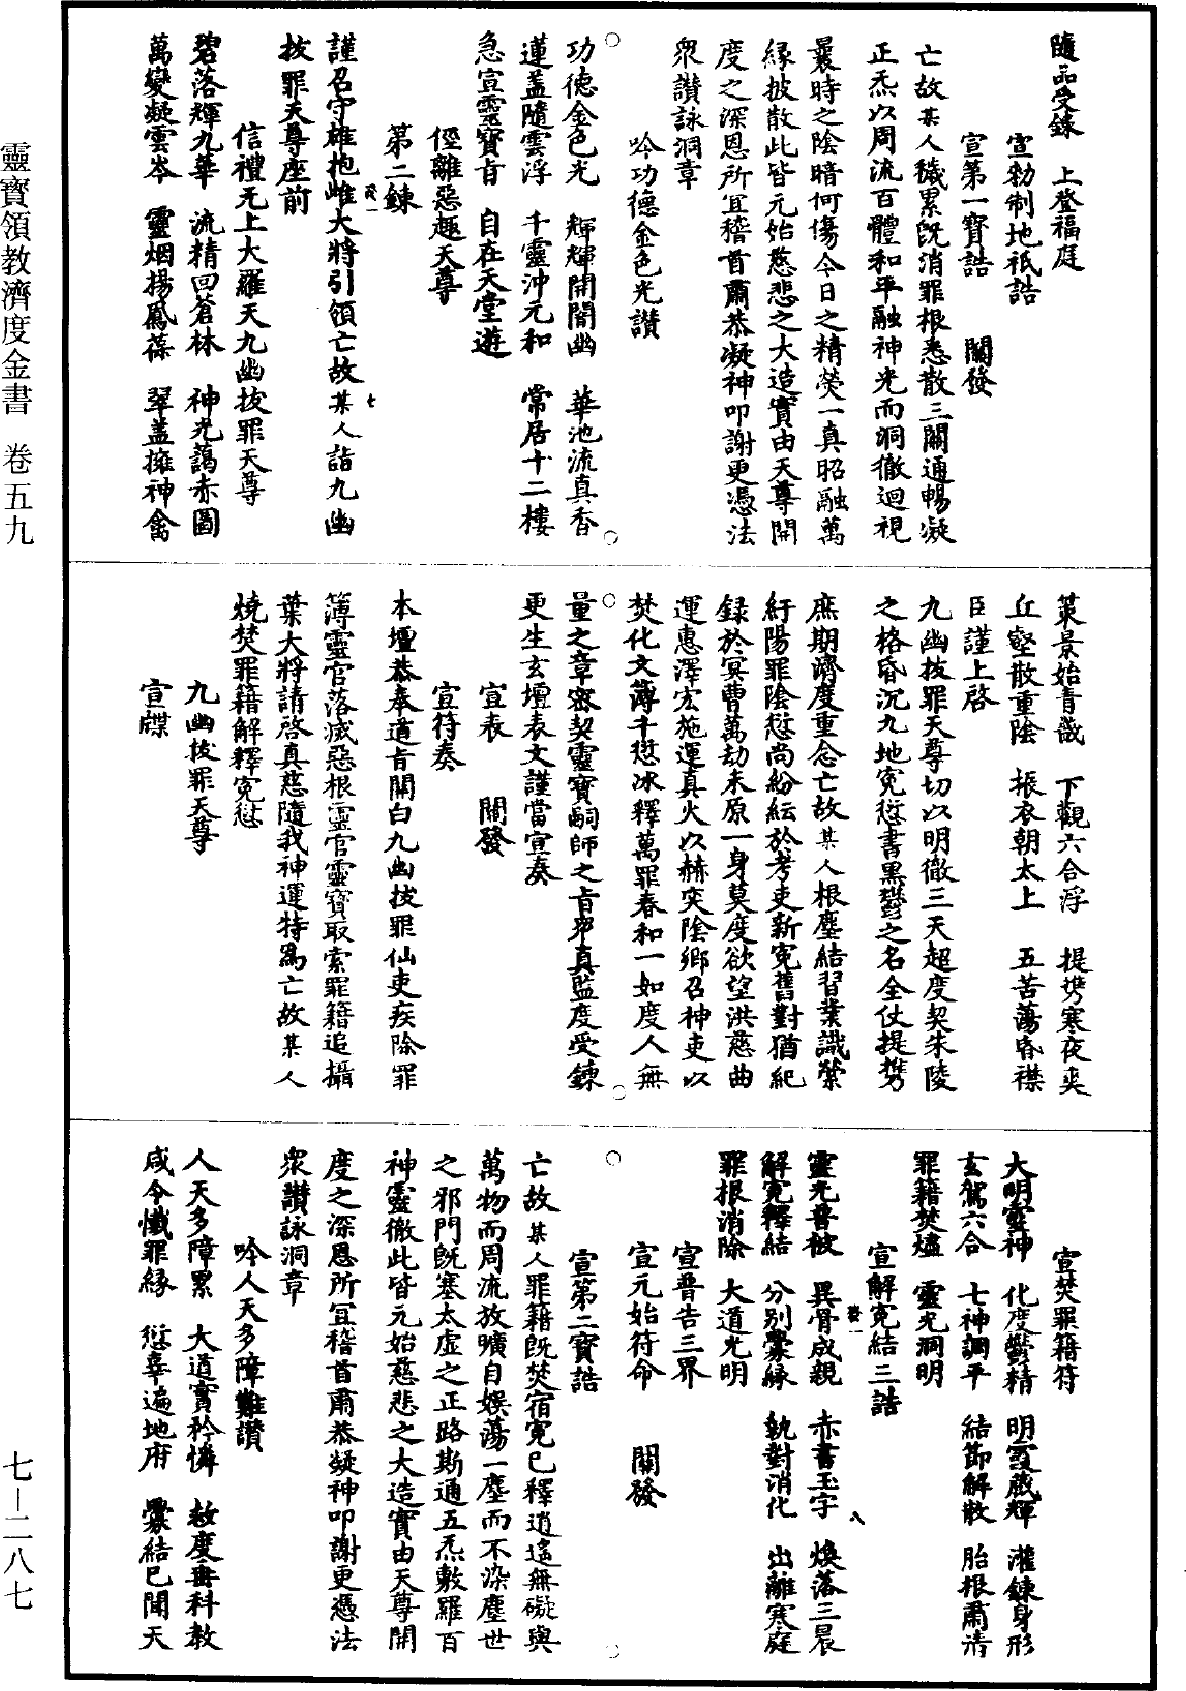 隨品受鍊　上登福庭
宣勑制地祇誥
宣第一寶誥　關發
亡故某人穢累旣消罪根悉散三關通暢凝
正炁以周流百體和平融神光而洞徹迴視
曩時之陰暗何傷今日之精熒一真昭融萬
緣披散此皆元始慈悲之大造實由天尊開
度之深恩所宜稽首肅恭凝神叩謝更憑法
衆讚詠洞章
吟功德金色光讃
○
功德金色光　輝輝開闇幽　華池流真香
蓮蓋隨雲浮　千靈沖元和　常居十二樓
急宣靈寶旨　自在天堂遊
徑離惡趣天尊
第二鍊
謹召守雄抱雌大將引領亡故某人詣九幽
拔罪天尊座前
信禮无上大羅天九幽拔罪天尊
碧落輝九華　流精回蒼林　神光藹赤圖
萬變凝雲岑　靈烟揚鳳葆　翠蓋擁神禽
策景始青巖　下觀六合浮　提携寒夜爽
丘壑散重陰　振衣朝太上　五苦蕩昏襟
臣謹上啓
九幽拔罪天尊切以明徹三天超度契朱陵
之格昏沉九地寃愆書黑鬱之名全仗提携
庶期濟度重念亡故某人根塵結習業識縈
紆陽罪陰愆尚紛紜於考吏新寃舊對猶紀
録於冥曹萬劫未原一身莫度欲望洪慈曲
運惠澤宏施運真火以赫奕陰鄉召神吏以
焚化文薄千愆冰釋萬罪春和一如度人無
○
量之章密契靈寶嗣師之旨舉真監度受鍊
更生玄壇表文謹當宣奏
宣表　關發
宣符奏
本壇恭奉道旨關白九幽拔罪仙吏疾除罪
簿靈官落滅惡根靈官靈寶取索罪籍追攝
葉大將請啓真慈隨我神運特爲亡故某人
燒焚罪籍解釋寃愆
九幽拔罪天尊
宣牒
宣焚罪籍符
大明靈神　化度鬱精　明霞藏輝　灌鍊身形
玄駕六合　七神調平　結節解散　胎根肅清
罪籍焚燼　靈光洞明
宣解寃結三誥
靈光普被　異骨成親　赤書玉字　煥落三晨
解寃釋結　分別釁緣　執對消化　出離寒庭
罪根消除　大道光明
宣普告三界
宣元始符命　關發
○
宣第二寶誥
亡故某人罪籍旣焚宿寃已釋逍遙無礙與
萬物而周流放曠自娛蕩一塵而不染塵世
之邪門旣塞太虛之正路斯通五炁敷羅百
神靈徹此皆元始慈悲之大造實由天尊開
度之深恩所宜稽首肅恭凝神叩謝更憑法
衆讃詠洞章
吟人天多障難讃
人天多障累　大道實矜憐　敕度垂科教
咸令懺罪緣　愆辜遍地府　釁結已聞天
靈寶領教濟度金書　卷五九
七—二八七